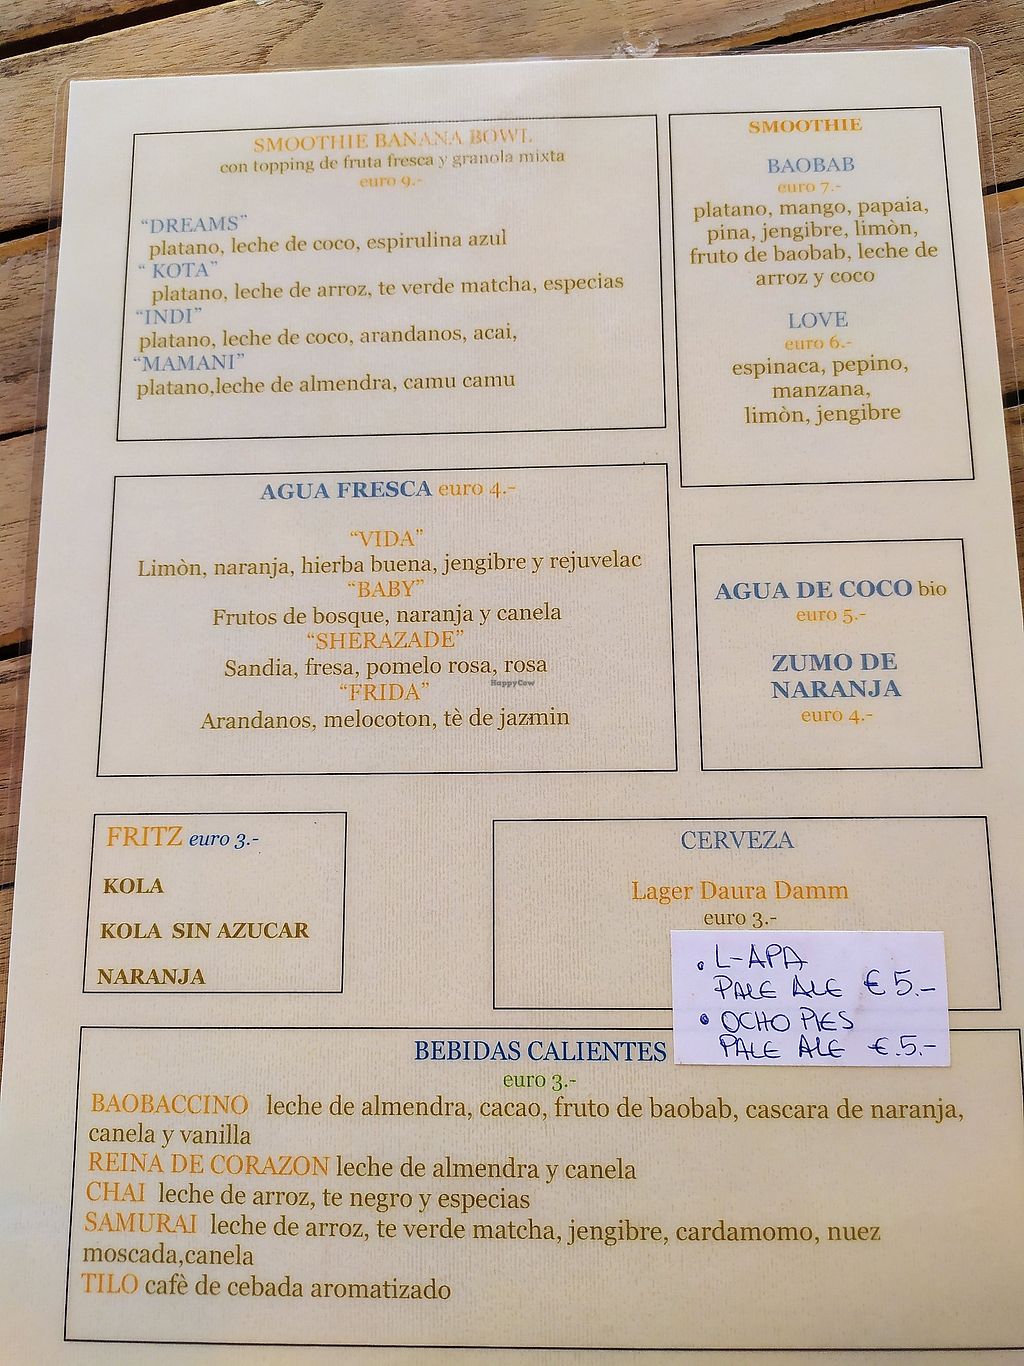 SMOOTHIE BANANA BOWL
con topping de fruta fresca y granola mixta
euro 9.-
“DREAMS”
platano, leche de coco, espirulina azul
“ KOTA”
platano, leche de arroz, te verde matcha, especias
“INDI”
platano, leche de coco, arandanos, acai,
“MAMANI”
platano,leche de almendra, camu camu
SMOOTHIE
BAOBAB
euro 7.-
platano, mango, papaia,
pina, jengibre, limòn,
fruto de baobab, leche de
arroz y coco
LOVE
euro 6.-
espinaca, pepino,
manzana,
limòn, jengibre
AGUA FRESCA euro 4.-
“VIDA”
Limòn, naranja, hierba buena, jengibre y rejuvelac
“BABY”
Frutos de bosque, naranja y canela
“SHERAZADE”
Sandia, fresa, pomelo rosa, rosa
“FRIDA”
Arandanos, melocoton, tè de jazmin
HappyCow
AGUA DE COCO bio
euro 5.-
ZUMO DE
NARANJA
euro 4.-
FRITZ euro 3.-
KOLA
KOLA SIN AZUCAR
NARANJA
CERVEZA
Lager Daura Damm
euro 3.-
• L-APA
PALE ALE € 5.-
• OCHO PIES
PALE ALE €.5.-
BEBIDAS CALIENTES
euro 3.-
BAOBACCINO leche de almendra, cacao, fruto de baobab, cascara de naranja,
canela y vanilla
REINA DE CORAZON leche de almendra y canela
CHAI leche de arroz, te negro y especias
SAMURAI leche de arroz, te verde matcha, jengibre, cardamomo, nuez
moscada,canela
TILO cafè de cebada aromatizado